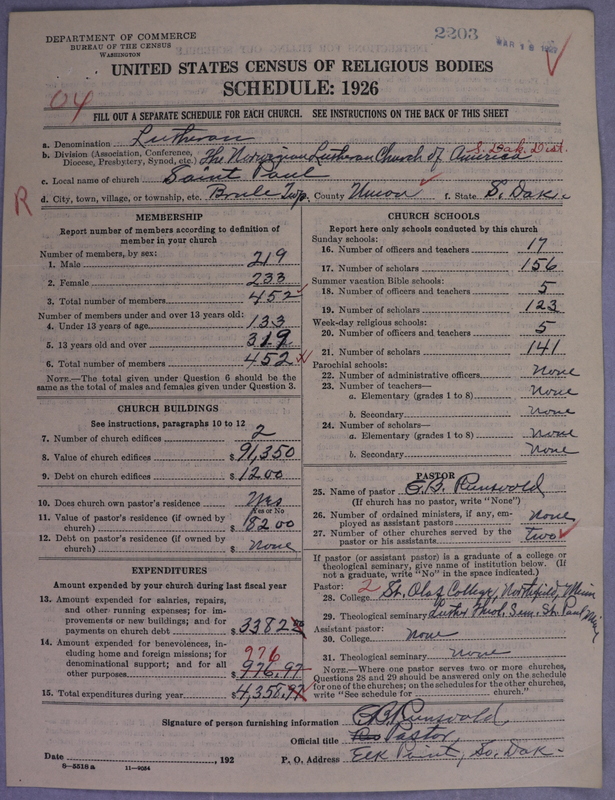 DEPARTMENT OF COMMERCE
BUREAU OF THE CENSUS
WASHINGTON
2203
MAR 18
UNITED STATES CENSUS OF RELIGIOUS BODIES
SCHEDULE: 1926
04
FILL OUT A SEPARATE SCHEDULE FOR EACH CHURCH. SEE INSTRUCTIONS ON THE BACK OF THIS SHEET
a. Denomination Lutheran
b. Division (Association, Conference, Diocese, Presbytery, Synod, etc.) The Norwegian Lutheran Church of America S. Dak. Dist.
c. Local name of church Saint Paul
d. City, town, village, or township, etc. Brule Twp. County Union f. State S. Dak.
R
MEMBERSHIP
Report number of members according to definition of
member in your church
Number of members, by sex:
1. Male 219
2. Female 233
3. Total number of members 452
Number of members under and over 13 years old:
4. Under 13 years of age 133
5. 13 years old and over 319
6. Total number of members 452
NOTE.—The total given under Question 6 should be the
same as the total of males and females given under Question 3.
CHURCH BUILDINGS
See instructions, paragraphs 10 to 12
7. Number of church edifices 2
8. Value of church edifices $ 91,350
9. Debt on church edifices $ 1200
10. Does church own pastor's residence Yes
Yes or No
11. Value of pastor's residence (if owned by
church) $ 8200
12. Debt on pastor's residence (if owned by
church) $ None
EXPENDITURES
Amount expended by your church during last fiscal year
13. Amount expended for salaries, repairs,
and other running expenses; for im-
provements or new buildings; and for
payments on church debt $ 3382
14. Amount expended for benevolences, in-
cluding home and foreign missions; for
denominational support; and for all
other purposes 976
$ 976.97
15. Total expenditures during year $ 4,358.97
CHURCH SCHOOLS
Report here only schools conducted by this church
Sunday schools:
16. Number of officers and teachers 17
17. Number of scholars 156
Summer vacation Bible schools:
18. Number of officers and teachers 5
19. Number of scholars 123
Week-day religious schools:
20. Number of officers and teachers 5
21. Number of scholars 141
Parochial schools:
22. Number of administrative officers None
23. Number of teachers—
a. Elementary (grades 1 to 8) None
b. Secondary None
24. Number of scholars—
a. Elementary (grades 1 to 8) None
b. Secondary None
PASTOR
25. Name of pastor Runsvold
(If church has no pastor, write "None")
26. Number of ordained ministers, if any, em-
ployed as assistant pastors None
27. Number of other churches served by the
pastor or his assistants two
If pastor (or assistant pastor) is a graduate of a college or
theological seminary, give name of institution below. (If
not a graduate, write "No" in the space indicated.)
Pastor: 2
28. College St. Olaf College, Northfield, Minn
29. Theological seminary Luther Theol. Sem. St. Paul Minn
Assistant pastor:
30. College None
31. Theological seminary None
NOTE.—Where one pastor serves two or more churches,
Questions 28 and 29 should be answered only on the schedule
for one of the churches; on the schedules for the other churches,
write "See schedule for church."
Signature of person furnishing information Runsvold,
Official title Pastor,
Date , 192 P. O. Address Elk Point, So. Dak.
8—5518a 11—9034